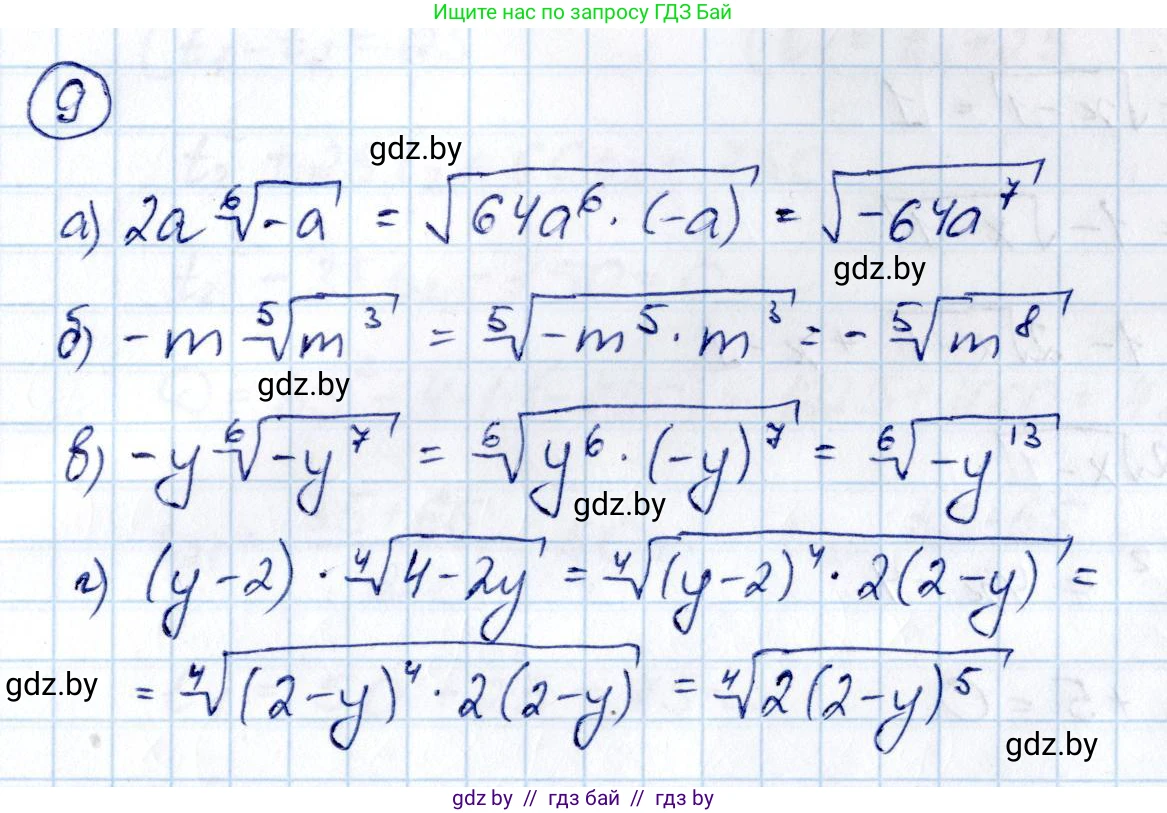 Ищите нас по запросу ГДЗ Бай
9
gdz.by
а) 2a ⁶√(-a) = √(64a⁶ · (-a)) = √(-64a⁷)
gdz.by
б) -m ⁵√(m³) = ⁵√(-m⁵ · m³) = - ⁵√(m⁸)
gdz.by
в) -y ⁶√(-y⁷) = ⁶√(y⁶ · (-y)⁷) = ⁶√(-y¹³)
gdz.by
г) (y-2) · ⁴√(4-2y) = ⁴√((y-2)⁴ · 2(2-y)) =
gdz.by = ⁴√((2-y)⁴ · 2(2-y)) = ⁴√(2(2-y)⁵)
gdz.by
gdz by // гдз бай // гдз by